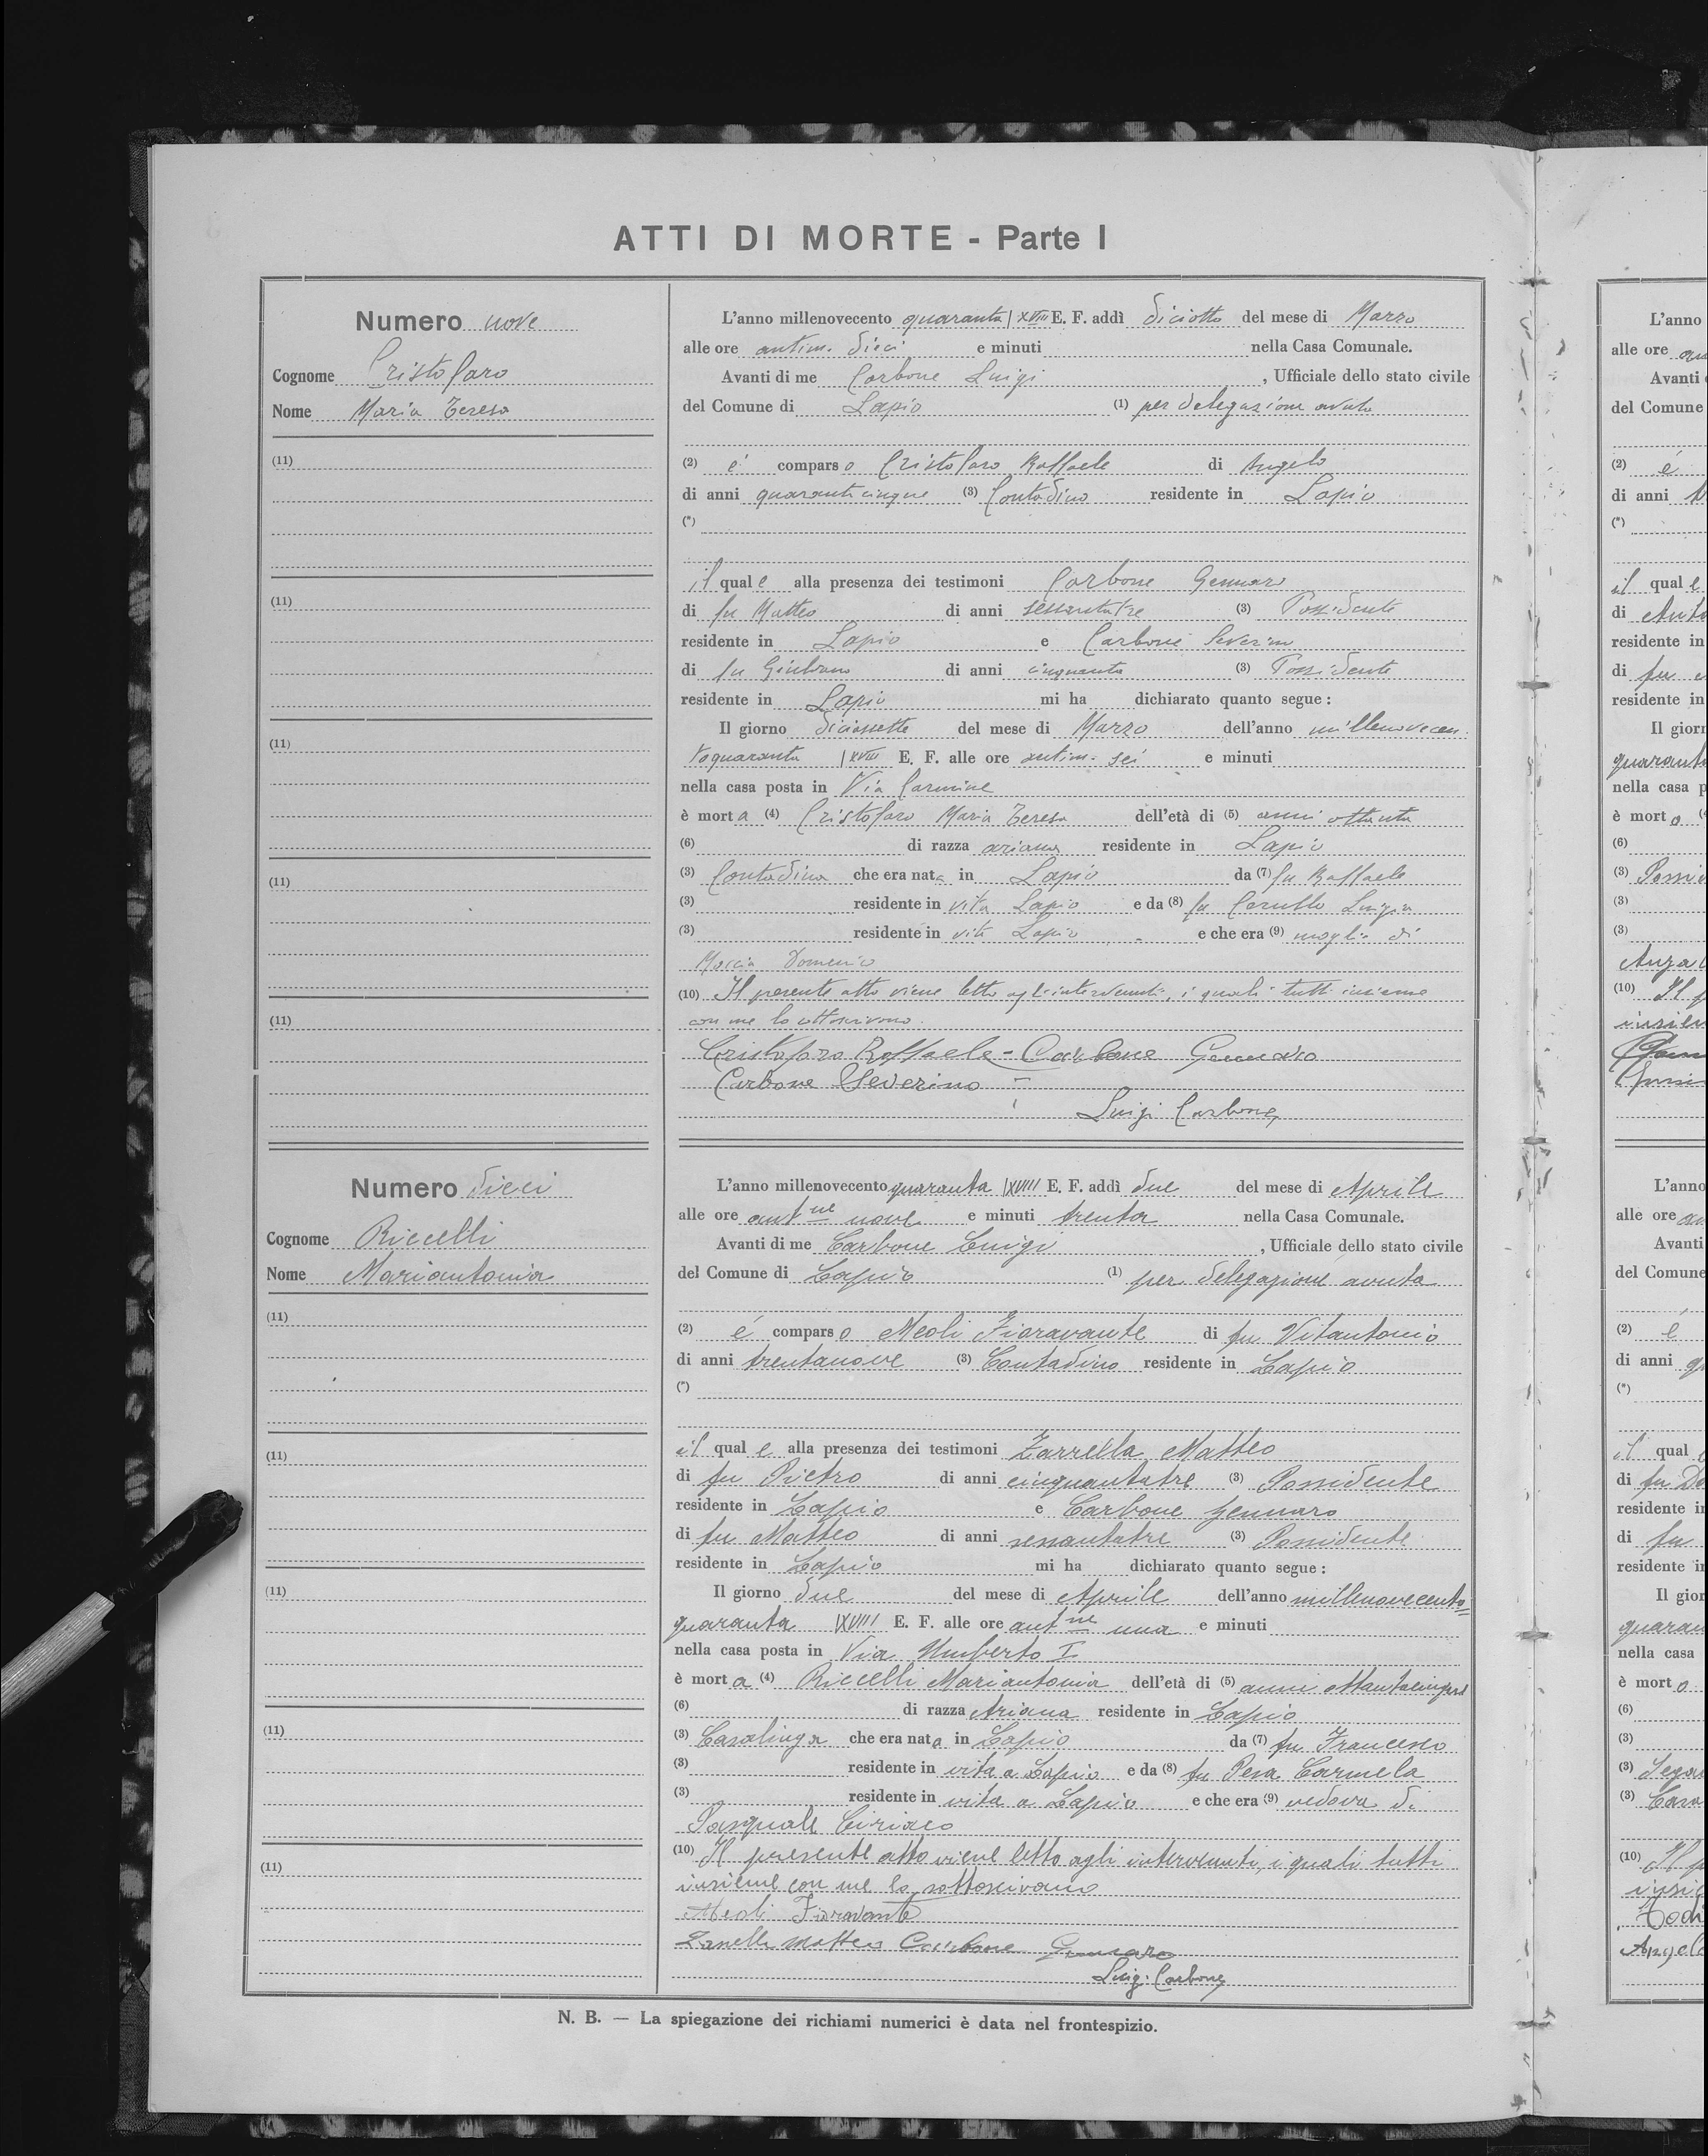 ATTI DI MORTE - Parte I
Numero nove
Cognome Cristofaro
Nome Maria Teresa
(11)
(11)
(11)
(11)
(11)
L'anno millenovecento quaranta / XVIII E. F. addì diciotto del mese di Marzo
alle ore antim. dieci e minuti nella Casa Comunale.
Avanti di me Carbone Luigi , Ufficiale dello stato civile
del Comune di Lapio (1) per delegazione avuta
(2) è comparso Cristofaro Raffaele di Angelo
di anni quaranticinque (3) Contadino residente in Lapio
(*)
il quale alla presenza dei testimoni Carbone Gennaro
di fu Matteo di anni sessantatre (3) Possidente
residente in Lapio e Carbone Severino
di fu Giuliano di anni cinquanta (3) Possidente
residente in Lapio mi ha dichiarato quanto segue :
Il giorno diciassette del mese di Marzo dell'anno millenovecen-
toquaranta / XVIII E. F. alle ore antim. sei e minuti
nella casa posta in Via Carmine
è morta (4) Cristofaro Maria Teresa dell'età di (5) anni ottanta
(6) di razza ariana residente in Lapio
(3) Contadina che era nata in Lapio da (7) fu Raffaele
(3) residente in vita Lapio e da (8) fu Carullo Luigia
(3) residente in vita Lapio e che era (9) moglie di
Moccia Domenico
(10) Il presente atto viene letto agli intervenuti, i quali tutti insieme
con me lo sottoscrivono.
Cristofaro Raffaele - Carbone Gennaro
Carbone Severino -
Luigi Carbone
Numero dieci
Cognome Riccelli
Nome Mariantonia
(11)
(11)
(11)
(11)
(11)
L'anno millenovecento quaranta / XVIII E. F. addì due del mese di Aprile
alle ore antne nove e minuti trenta nella Casa Comunale.
Avanti di me Carbone Luigi , Ufficiale dello stato civile
del Comune di Lapio (1) per delegazione avuta
(2) è comparso Meoli Fioravante di fu Vitantonio
di anni trentanove (3) Contadino residente in Lapio
(*)
il quale alla presenza dei testimoni Zarrella Matteo
di fu Pietro di anni cinquantatre (3) Possidente
residente in Lapio e Carbone Gennaro
di fu Matteo di anni sessantatre (3) Possidente
residente in Lapio mi ha dichiarato quanto segue :
Il giorno due del mese di Aprile dell'anno millenovecento=
quaranta / XVIII E. F. alle ore antne una e minuti
nella casa posta in Via Umberto I
è morta (4) Riccelli Mariantonia dell'età di (5) anni ottantacinque
(6) di razza Ariana residente in Lapio
(3) Casalinga che era nata in Lapio da (7) fu Francesco
(3) residente in vita a Lapio e da (8) fu Pesa Carmela
(3) residente in vita a Lapio e che era (9) vedova di
Pasquale Ciriaco
(10) Il presente atto viene letto agli intervenuti, i quali tutti
insieme con me lo sottoscrivono
Meoli Fioravante
Zarrella Matteo Carbone Gennaro
Luigi Carbone
N. B. — La spiegazione dei richiami numerici è data nel frontespizio.
L'anno
alle ore
Avanti
del Comune
(2) è
di anni
(*)
il quale
di
residente in
di fu
residente in
Il giorn
quarant
nella casa p
è morto
(6)
(3)
(3)
(3)
(10) Il p
insiem
L'anno
alle ore
Avanti
del Comune
(2) è
di anni
(*)
il qual
di fu
residente in
di fu
residente in
Il gior
quaran
nella casa
è morto
(6)
(3)
(3)
(3)
(10) Il p
insie